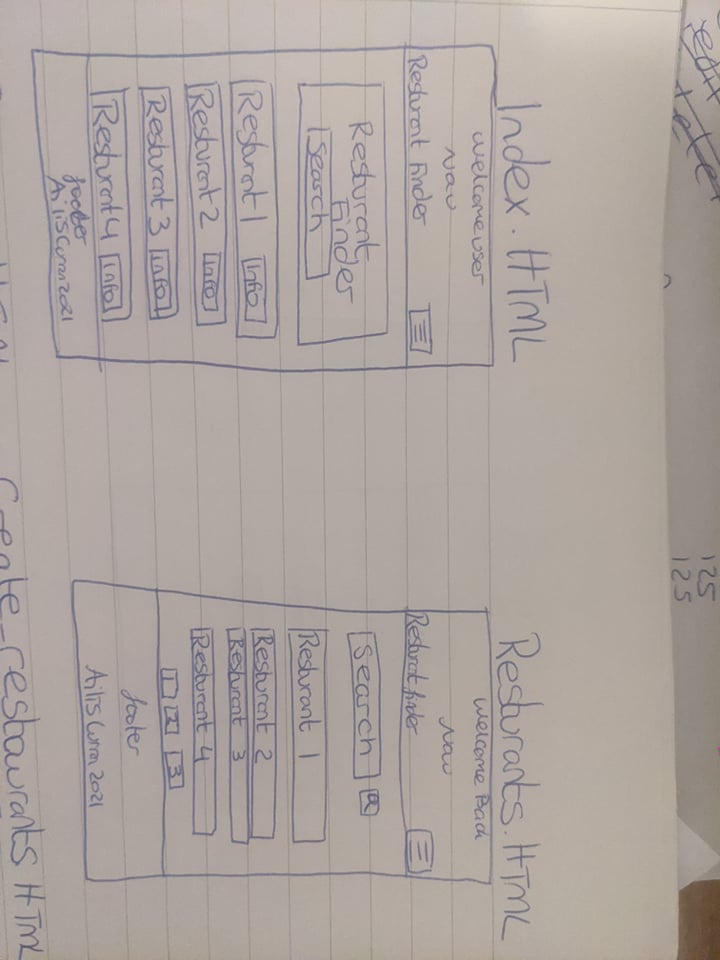 edit
125
125
Index.HTML
welcome user
Nav
Resturant Finder
Resturant
Finder
Search
Resturant 1 Info
Resturant 2 Info
Resturant 3 info
Resturant 4 info
footer
Ailis Curran 2021
Resturants.HTML
Welcome Back
Nav
Resturant finder
Search
Resturant 1
Resturant 2
Resturant 3
Resturant 4
1 2 3
footer
Ailis Curran 2021
HTML
Create_restaurants HTML